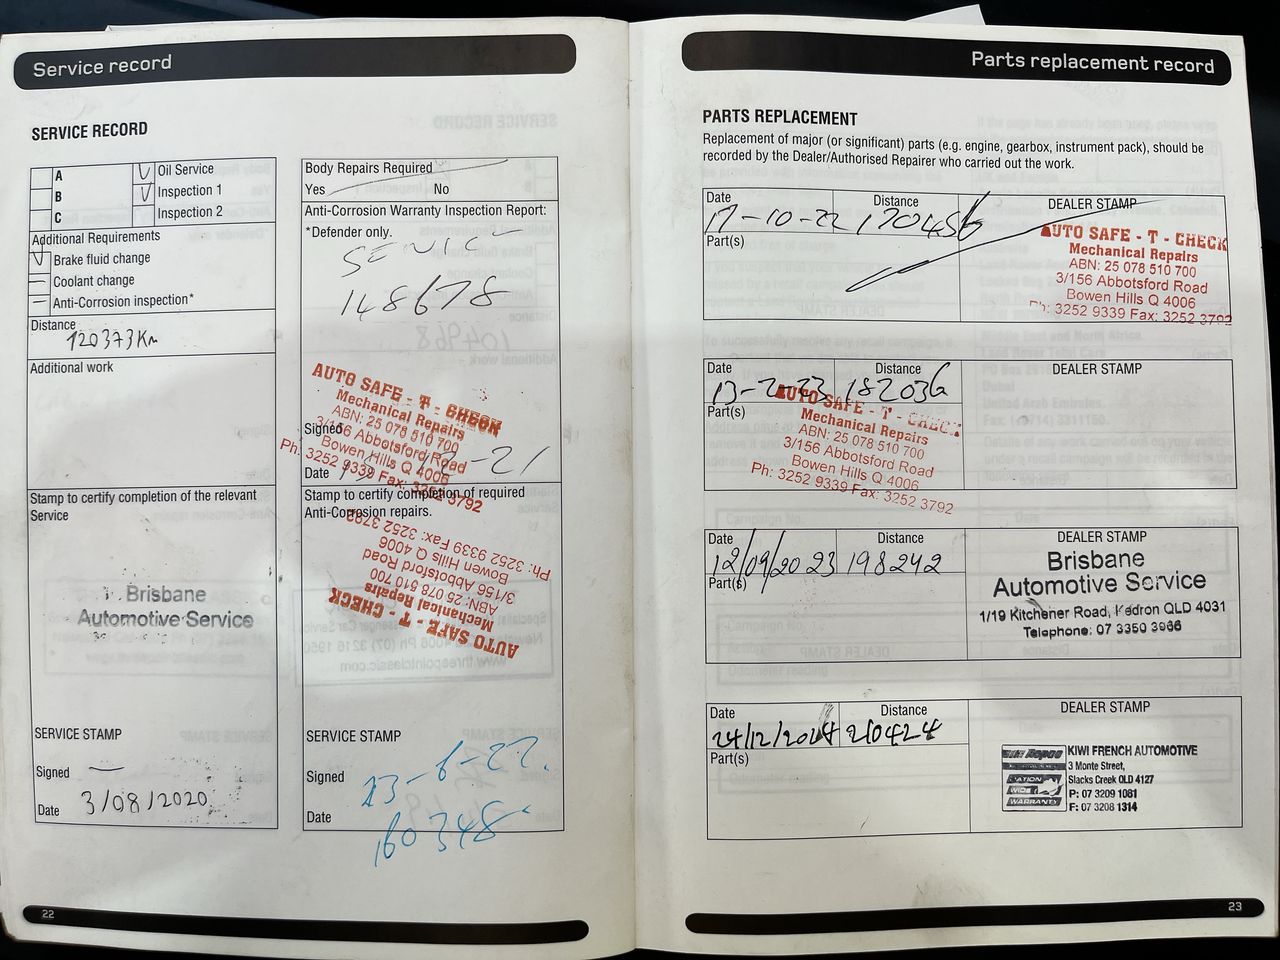 Service record
SERVICE RECORD
A
B
C
Oil Service
Inspection 1
Inspection 2
Additional Requirements
Brake fluid change
Coolant change
Anti-Corrosion inspection*
Distance
120373Km
Additional work
Stamp to certify completion of the relevant
Service
Brisbane
Automotive Service
SERVICE STAMP
Signed
Date 3/08/2020
22
Body Repairs Required
Yes No
Anti-Corrosion Warranty Inspection Report:
*Defender only.
148678
AUTO SAFE - T - CHECK
Mechanical Repairs
ABN: 25 078 510 700
3/156 Abbotsford Road
Bowen Hills Q 4006
Ph: 3252 9339 Fax: 3252 3792
Signed
Date
-21
Stamp to certify completion of required
Anti-Corrosion repairs.
AUTO SAFE - T - CHECK
Mechanical Repairs
ABN: 25 078 510 700
3/156 Abbotsford Road
Bowen Hills Q 4006
Ph: 3252 9339 Fax: 3252 3792
SERVICE STAMP
Signed 23-6-22.
Date 160348
Parts replacement record
PARTS REPLACEMENT
Replacement of major (or significant) parts (e.g. engine, gearbox, instrument pack), should be
recorded by the Dealer/Authorised Repairer who carried out the work.
Date Distance DEALER STAMP
17-10-22 170456
Part(s)
AUTO SAFE - T - CHECK
Mechanical Repairs
ABN: 25 078 510 700
3/156 Abbotsford Road
Bowen Hills Q 4006
Ph: 3252 9339 Fax: 3252 3792
Date Distance DEALER STAMP
13-2-23 182036
Part(s)
AUTO SAFE - T - CHECK
Mechanical Repairs
ABN: 25 078 510 700
3/156 Abbotsford Road
Bowen Hills Q 4006
Ph: 3252 9339 Fax: 3252 3792
Date Distance DEALER STAMP
12/09/2023 198242
Part(s)
Brisbane
Automotive Service
1/19 Kitchener Road, Kedron QLD 4031
Telephone: 07 3350 3966
Date Distance DEALER STAMP
24/12/2024 210424
Part(s)
Repco
NATION
WIDE
WARRANTY
KIWI FRENCH AUTOMOTIVE
3 Monte Street,
Slacks Creek QLD 4127
P: 07 3209 1081
F: 07 3208 1314
23